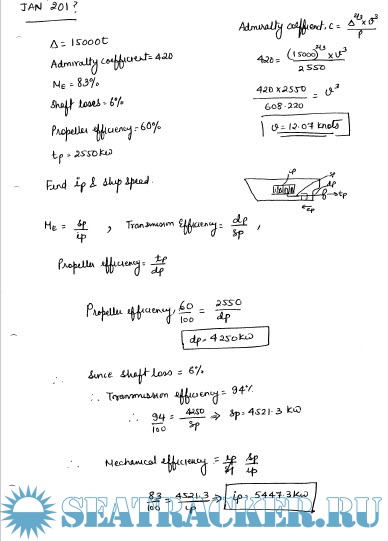 JAN 201?
Δ = 15000t
Admiralty coefficient = 420
ME = 83%
Shaft losses = 6%
Propeller efficiency = 60%
tp = 2550kw
Find ip & ship speed.
Admiralty coefficient, C = Δ^2/3 × v^3 / P
420 = (15000)^2/3 × v^3 / 2550
420 × 2550 / 608.220 = v^3
v = 12.07 knots
ip
sp
dp
tp
ME = sp/ip , Transmission Efficiency = dp/sp ,
Propeller efficiency = tp/dp
Propeller efficiency, 60/100 = 2550/dp
dp = 4250kw
∴ Since Shaft loss = 6%
∴ Transmission efficiency = 94%
∴ 94/100 = 4250/sp ⇒ sp = 4521.3 kw
∴ Mechanical efficiency = sp/ip
83/100 = 4521.3/ip ⇒ ip = 5447.3kw
SEATRACKER.RU